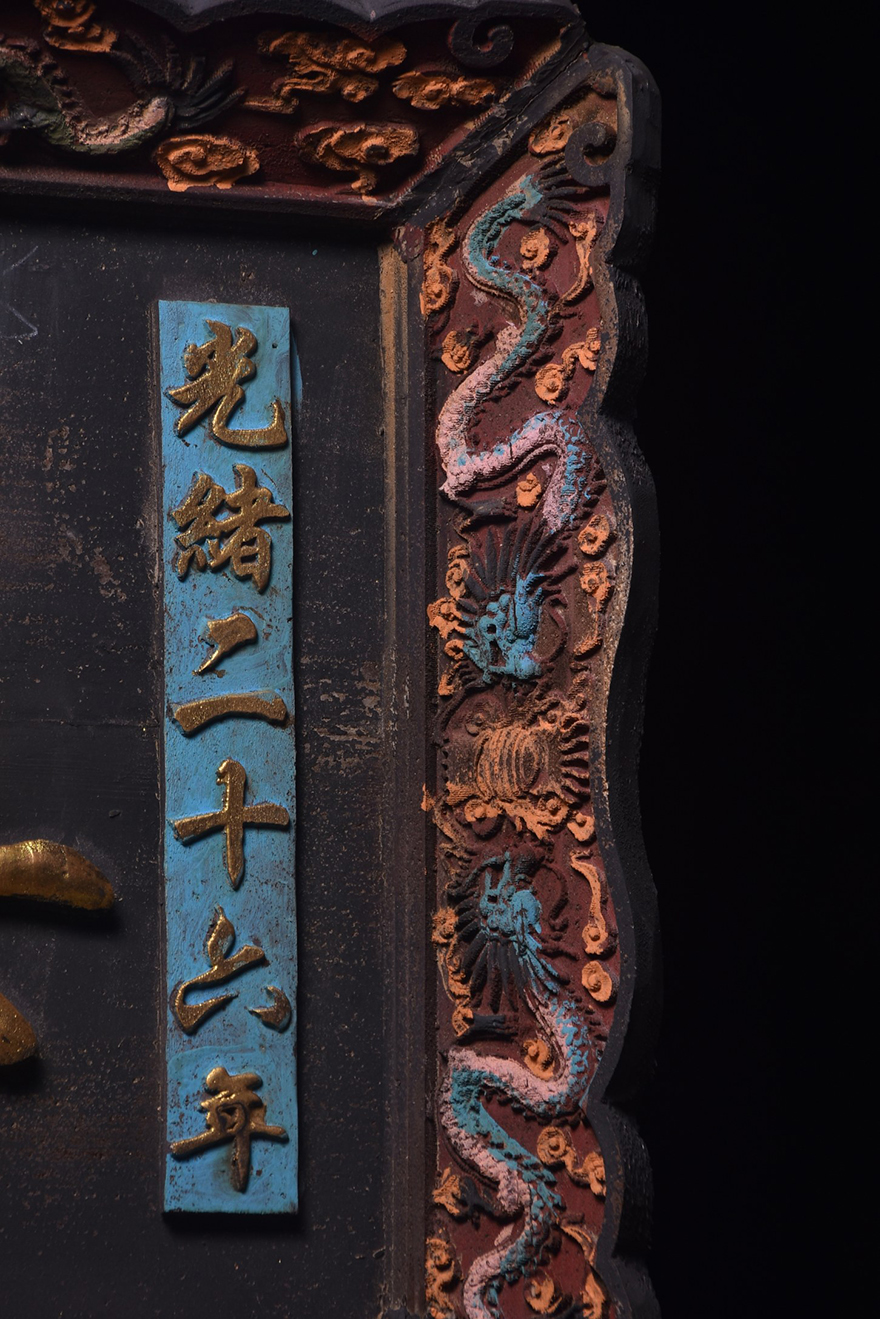 光緒二十六年